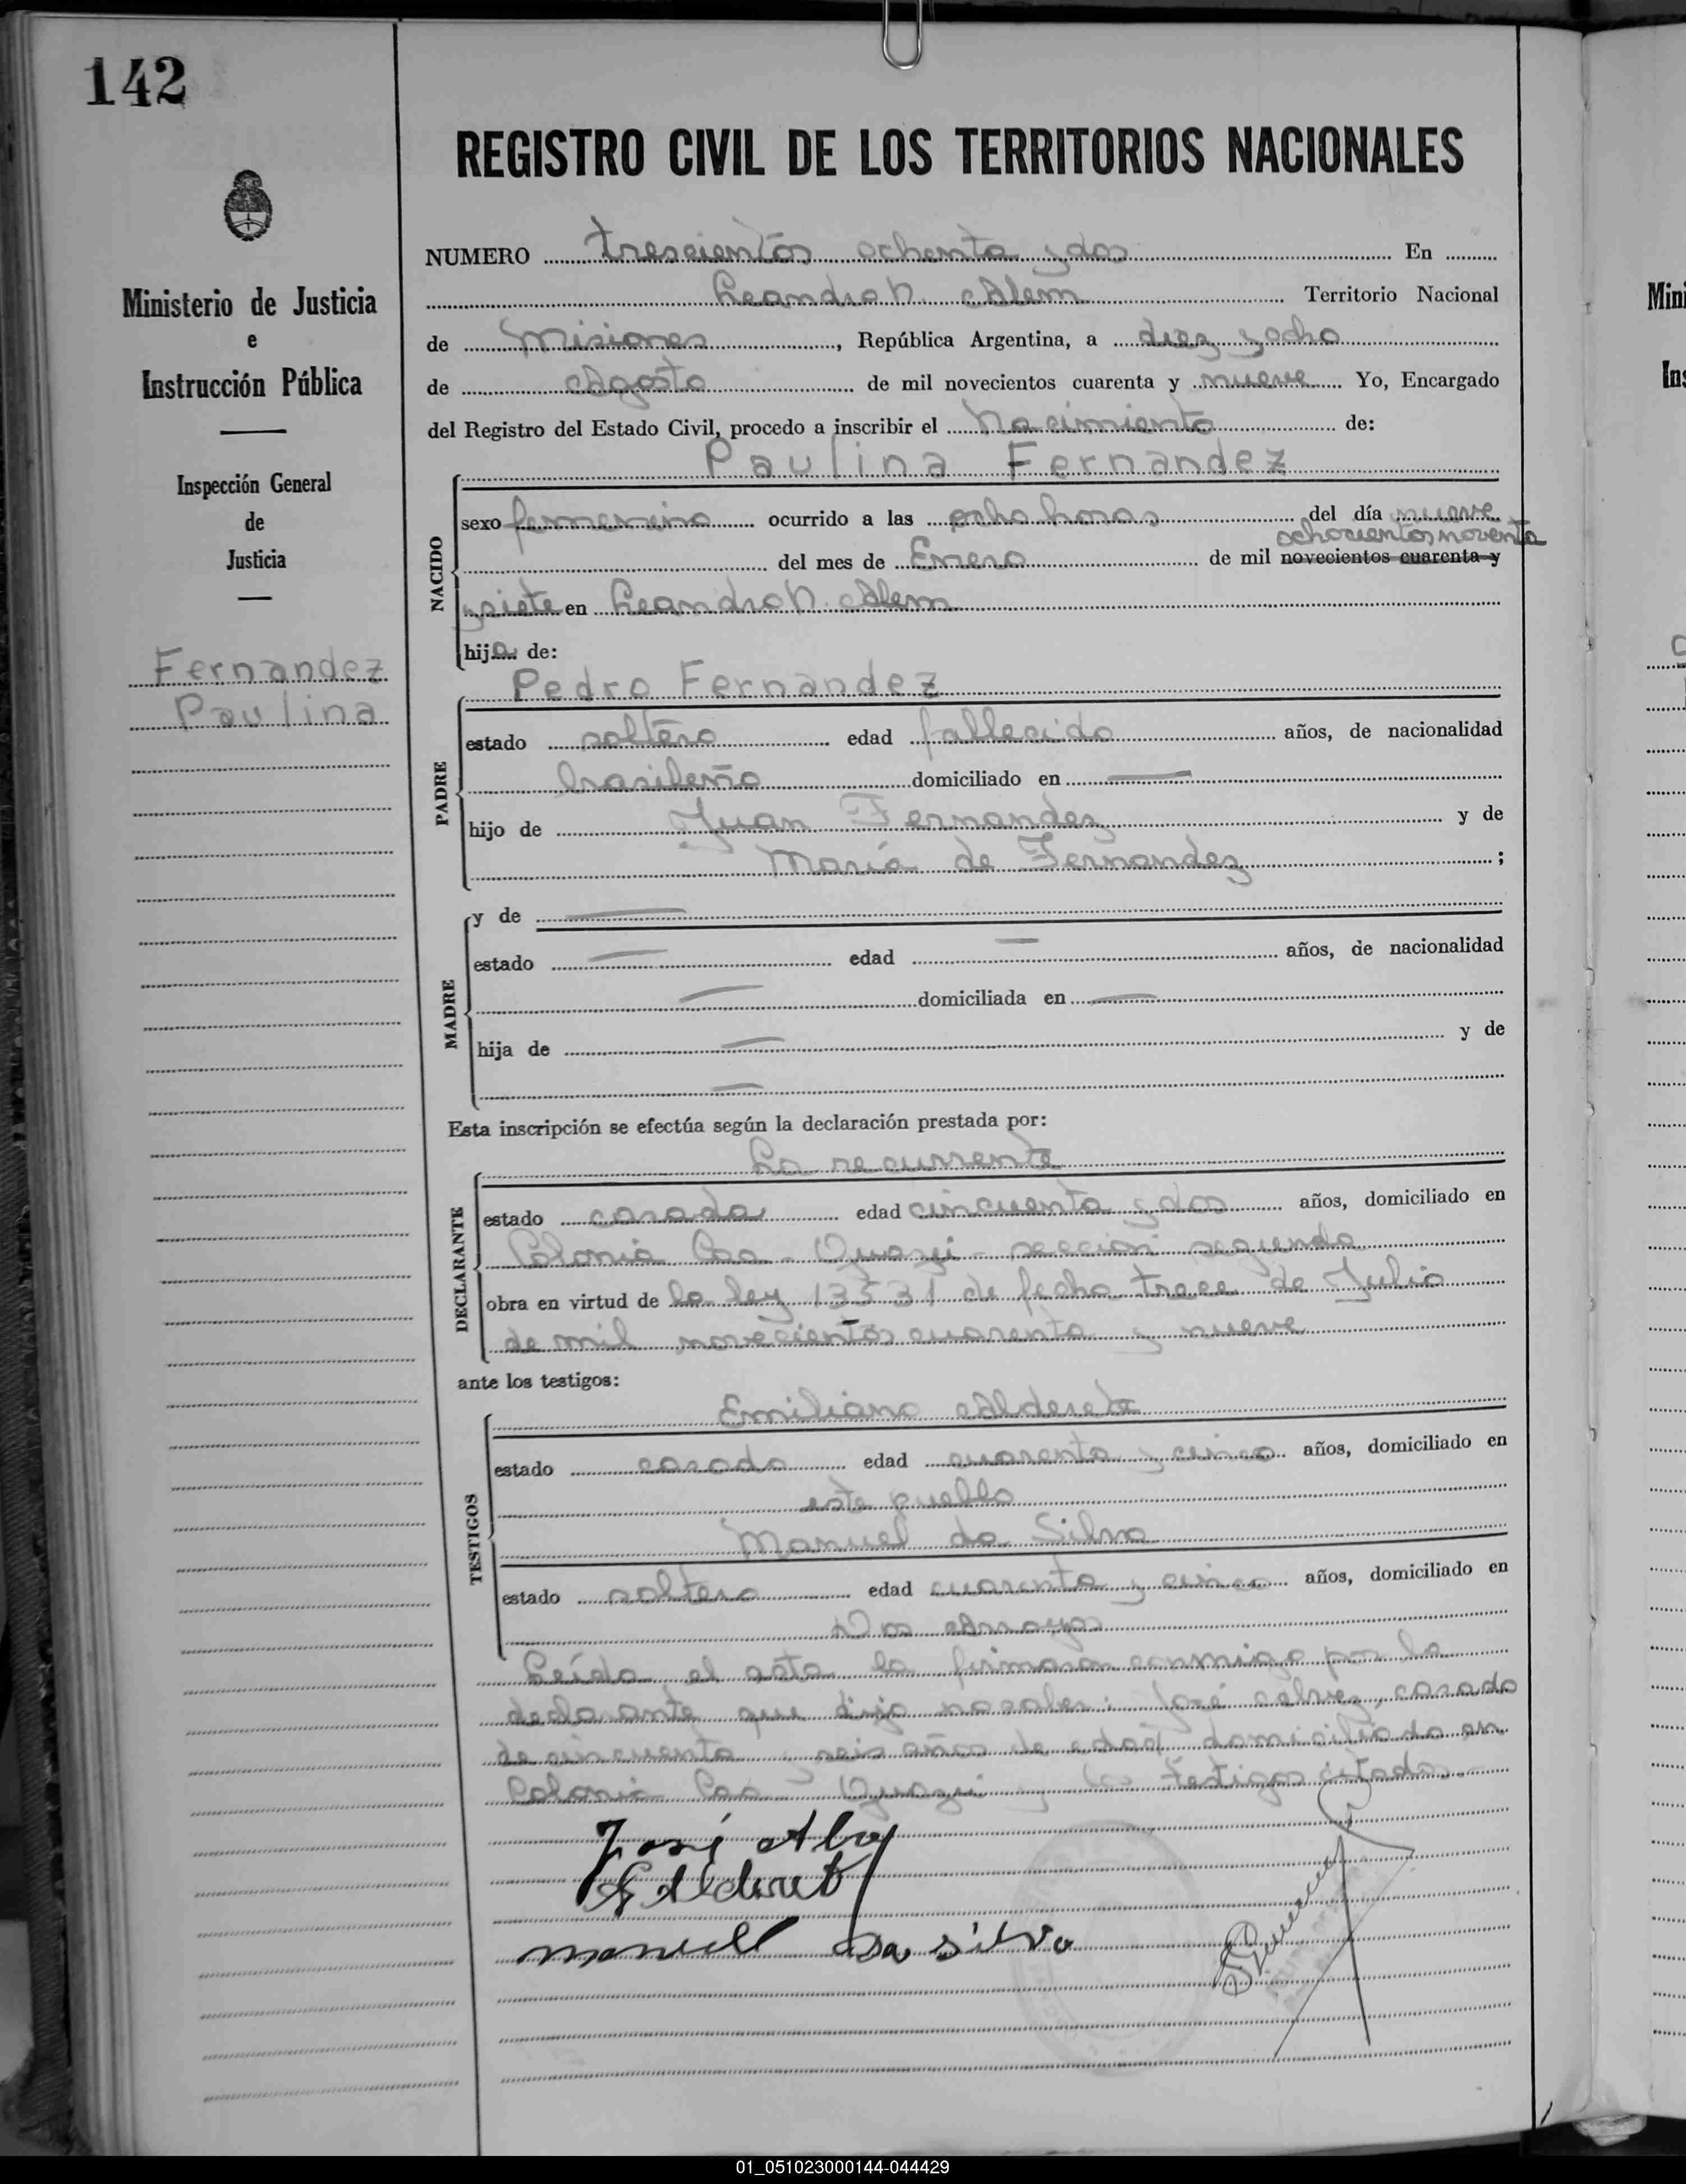 142
REGISTRO CIVIL DE LOS TERRITORIOS NACIONALES
Ministerio de Justicia
e
Instrucción Pública
Inspección General
de
Justicia
Fernandez
Paulina
NUMERO trescientos ochenta y dos En
Leandro N. Alem Territorio Nacional
de Misiones, República Argentina, a diez y ocho
de Agosto de mil novecientos cuarenta y nueve Yo, Encargado
del Registro del Estado Civil, procedo a inscribir el Nacimiento de:
Paulina Fernandez
NACIDO
sexo femenino ocurrido a las ocho horas del día nueve
ochocientos noventa
del mes de Enero de mil novecientos cuarenta y
y siete en Leandro N. Alem
hija de:
Pedro Fernandez
PADRE
estado soltero edad fallecido años, de nacionalidad
brasileño domiciliado en
hijo de Juan Fernandez y de
María de Fernandez ;
MADRE
y de
estado edad años, de nacionalidad
domiciliada en
hija de y de
Esta inscripción se efectúa según la declaración prestada por:
La recurrente
DECLARANTE
estado casada edad cincuenta y dos años, domiciliado en
Colonia Caa - Yuazú - sección segunda
obra en virtud de la ley 13531 de fecha trece de Julio
de mil novecientos cuarenta y nueve
ante los testigos:
Emiliano Alderete
TESTIGOS
estado casado edad cuarenta y cinco años, domiciliado en
este pueblo
Manuel da Silva
estado soltero edad cuarenta y cinco años, domiciliado en
Dos Arroyos
Leída el acta la firmaron conmigo por la
declarante que dijo no saber: José Alvez, casado
de cincuenta y seis años de edad domiciliado en
Colonia Caa - y los testigos citados.-
José Alvez
E Alderete
manuel Da silva
Mini
Ins
01_051023000144-044429